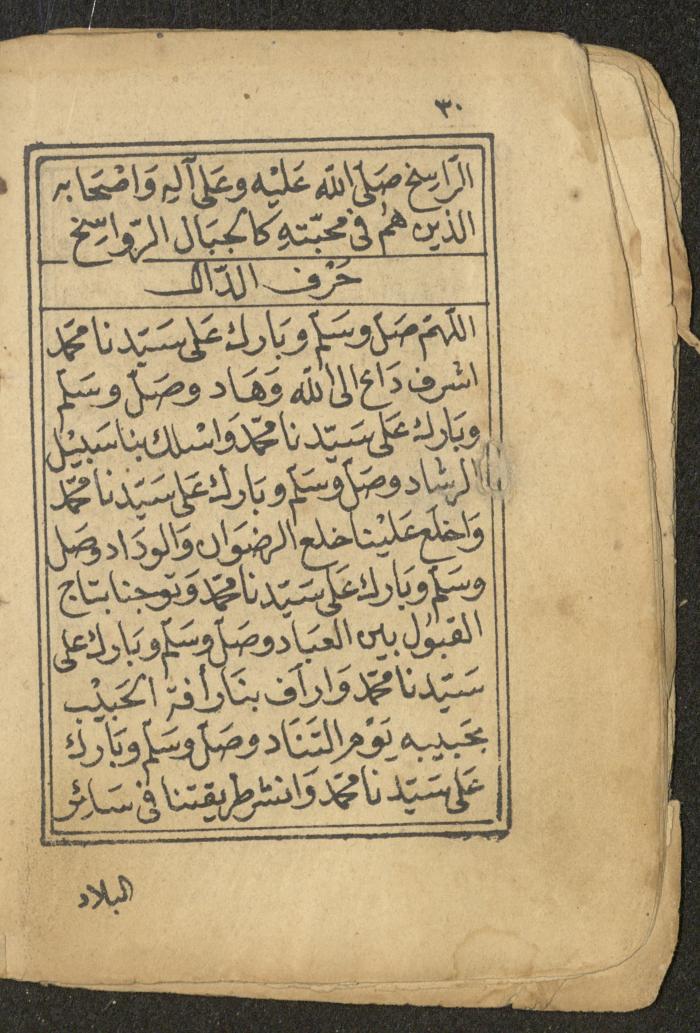 ٣٠
الرّاسخ صَلّى الله عَليْه وعَلى آله وَاصْحَابه
الذين هُم فى محبّتهِ كالجبَال الرّواسِخ
حَرْف الدّال
اللّهمّ صَلّ وسَلّم وبَارك عَلى سَيّدنا محمّد
اشرف دَاع الى الله وَهَاد وصَلّ وسَلّم
وبَارك عَلى سَيّدنا محمّد وَاسْلك بنا سَبيْل
الرشاد وصَلّ وسَلّم وبَارك عَلى سَيّدنا محمّد
وَاخلع عَليْنا خلع الرضوَان وَالودَاد وصَل
وسَلّم وبَارك عَلى سَيّدنا محمّد وَتوجنا بتاج
القبوُل بين العبَاد وصَلّ وسَلّم وبَارك على
سَيّدنا محمّد وَارأف بنَا رأفة الحَبيْب
بحَبيبه يَوْم التنَاد وصَلّ وسَلّم وبَارك
عَلى سَيّدنا محمّد وَانشر طريقتنا فى سَائِر
البلاد